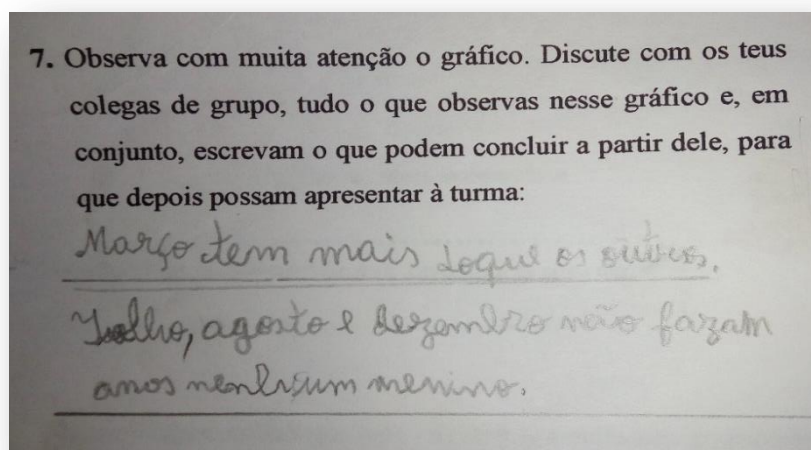 7. Observa com muita atenção o gráfico. Discute com os teus
colegas de grupo, tudo o que observas nesse gráfico e, em
conjunto, escrevam o que podem concluir a partir dele, para
que depois possam apresentar à turma:
Março tem mais doque os outros.
Julho, agosto e dezembro não fazam
anos nenhum menino.